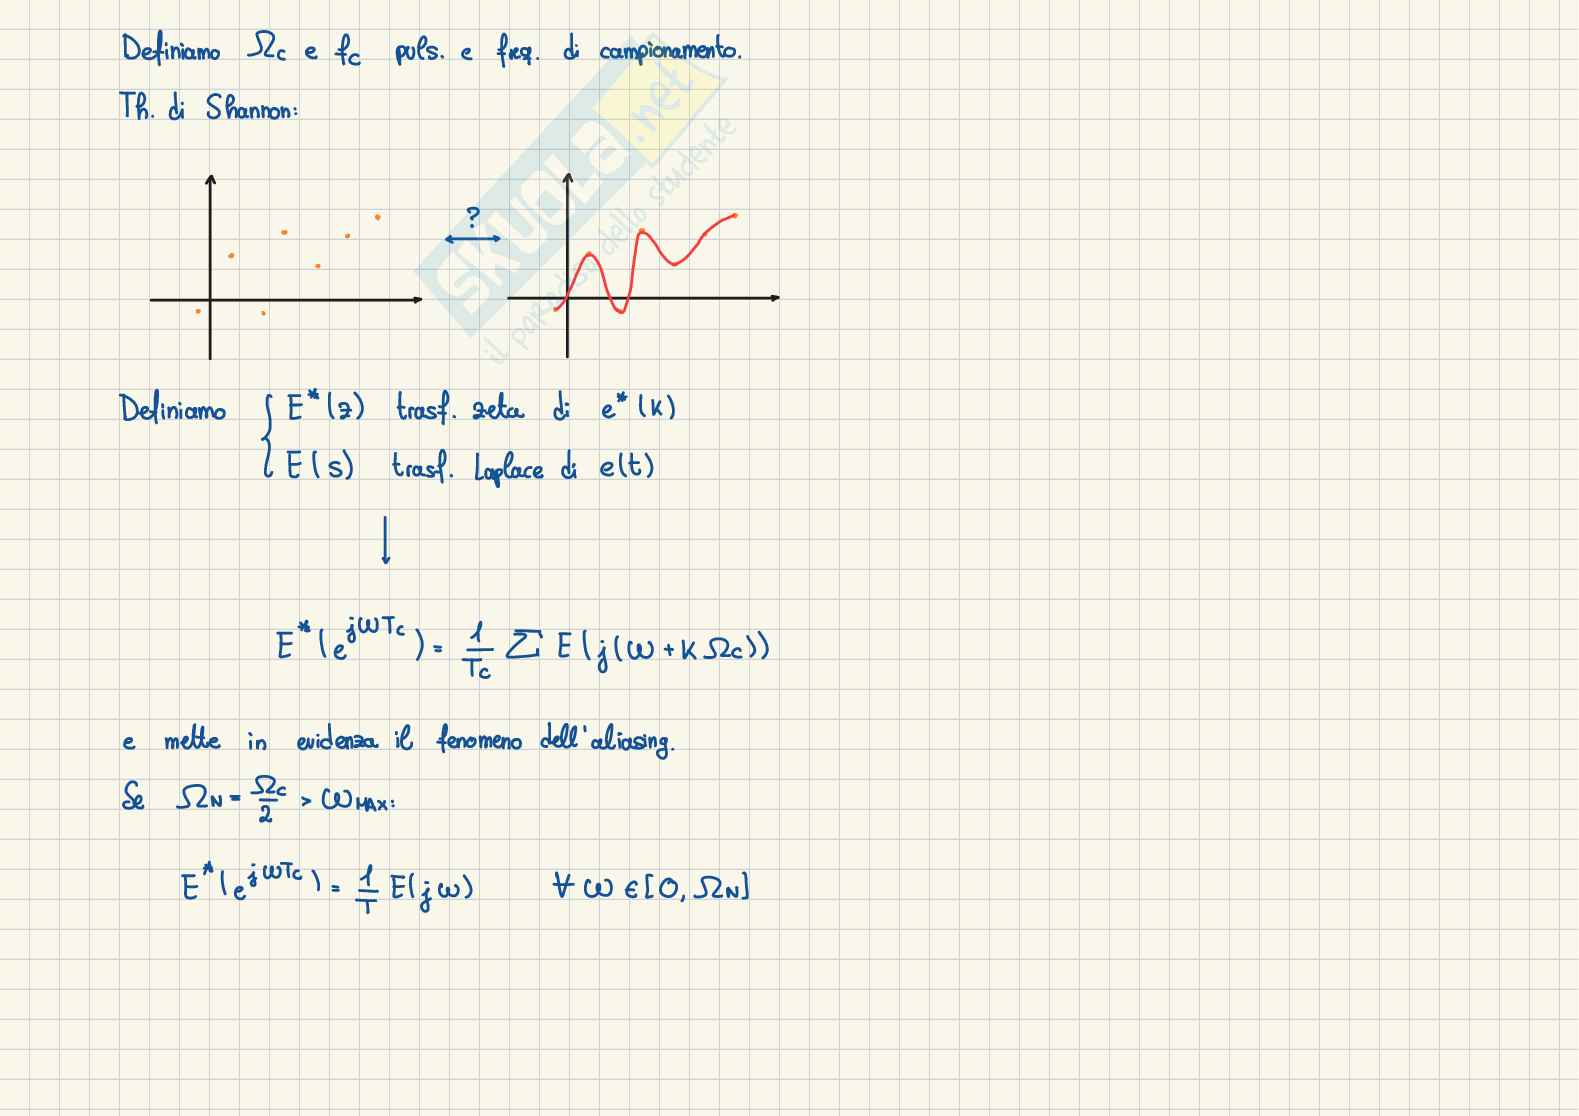 Definiamo Ωc e fc puls. e freq. di campionamento.
Th. di Shannon:
?
SKUOLA.net
il paradiso dello studente
Definiamo { E*(z) trasf. zeta di e*(k)
E(s) trasf. Laplace di e(t)
E*(e^{jωTc}) = 1/Tc Σ E(j(ω + kΩc))
e mette in evidenza il fenomeno dell'aliasing.
Se ΩN = Ωc/2 > ωMAX:
E*(e^{jωTc}) = 1/T E(jω) ∀ ω ∈ [0, ΩN]